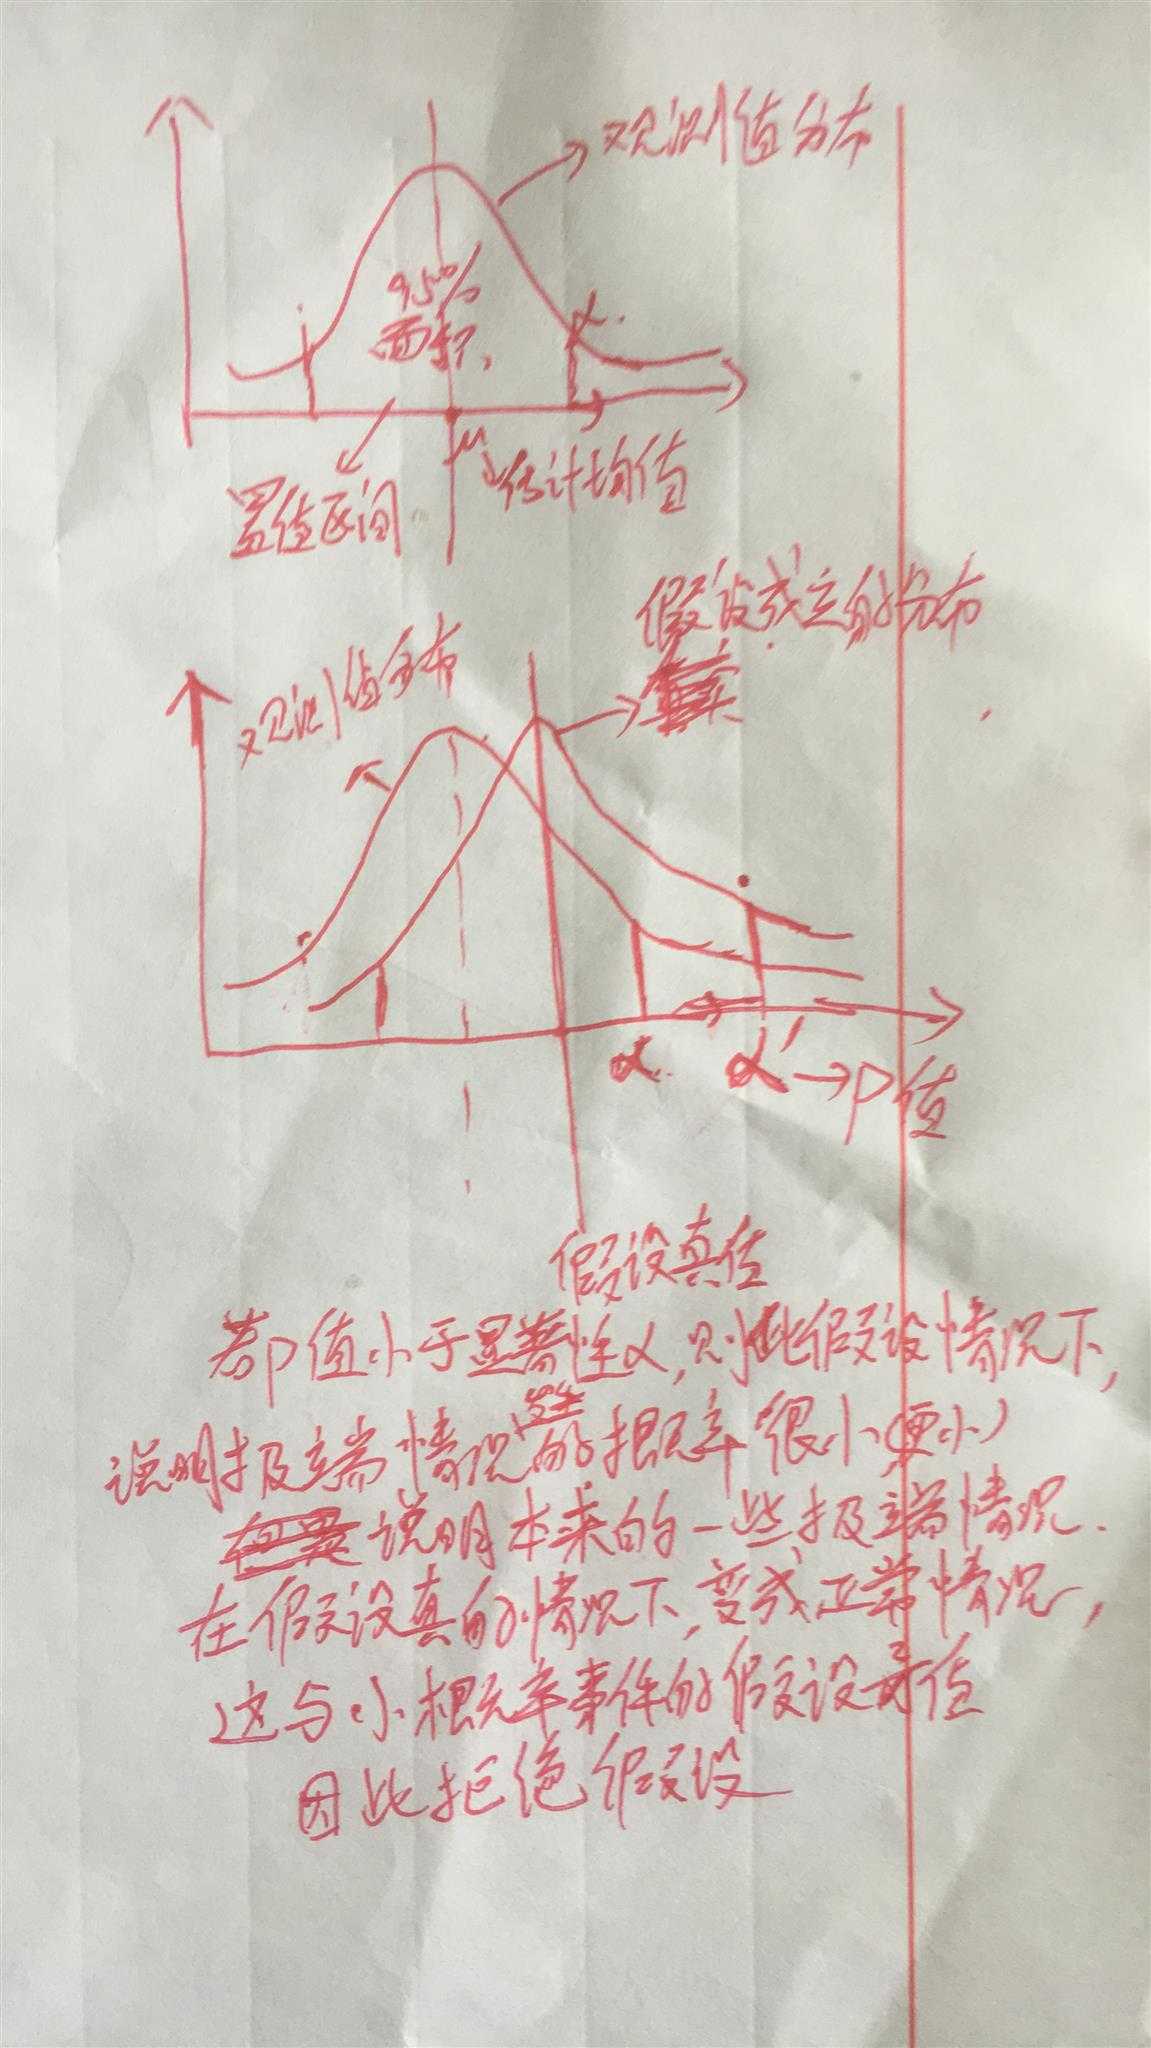 观测值分布
95%
面积
α
μ
估计均值
置信区间
假设成立的分布
观测值分布
α
α' → P值
假设真值
若P值小于显著性α,则此假设情况下,
说明极端情况发生的概率很小(更小)
说明本来的一些极端情况.
在假设真的情况下,变成正常情况,
这与小概率事件的假设 值
因此拒绝假设